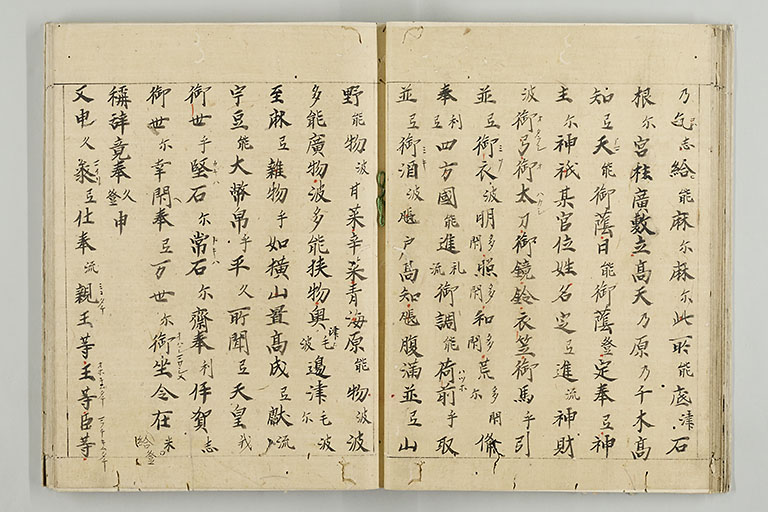 乃乞志給能麻尓麻尓此所能底津石
根尓宮柱廣敷立髙天乃原乃千木髙
知弖天能御蔭日能御蔭登定奉弖神
主尓神祇某官位姓名定弖進流神財
波御弓御太刀御鏡鈴衣笠御馬乎引
並弖御衣波明多閇照多閇和多閇荒多閇尓備
奉利弖四方國能進礼流御調能荷前乎取
並弖御酒波𤭖戸髙知𤭖腹滿並弖山
野能物波甘菜辛菜青海原能物波波
多能廣物波多能狭物奥津毛波邊津毛波尓
至麻弖雜物乎如横山置髙成弖獻流
宇豆能大幣帛乎平久所聞弖天皇我
御世乎堅石尓常石尓齋奉利伊賀志
御世尓幸閇奉弖万世尓御坐令在米給登
稱辞竟奉久登申
又申久叅弖仕奉流親王等王等臣等